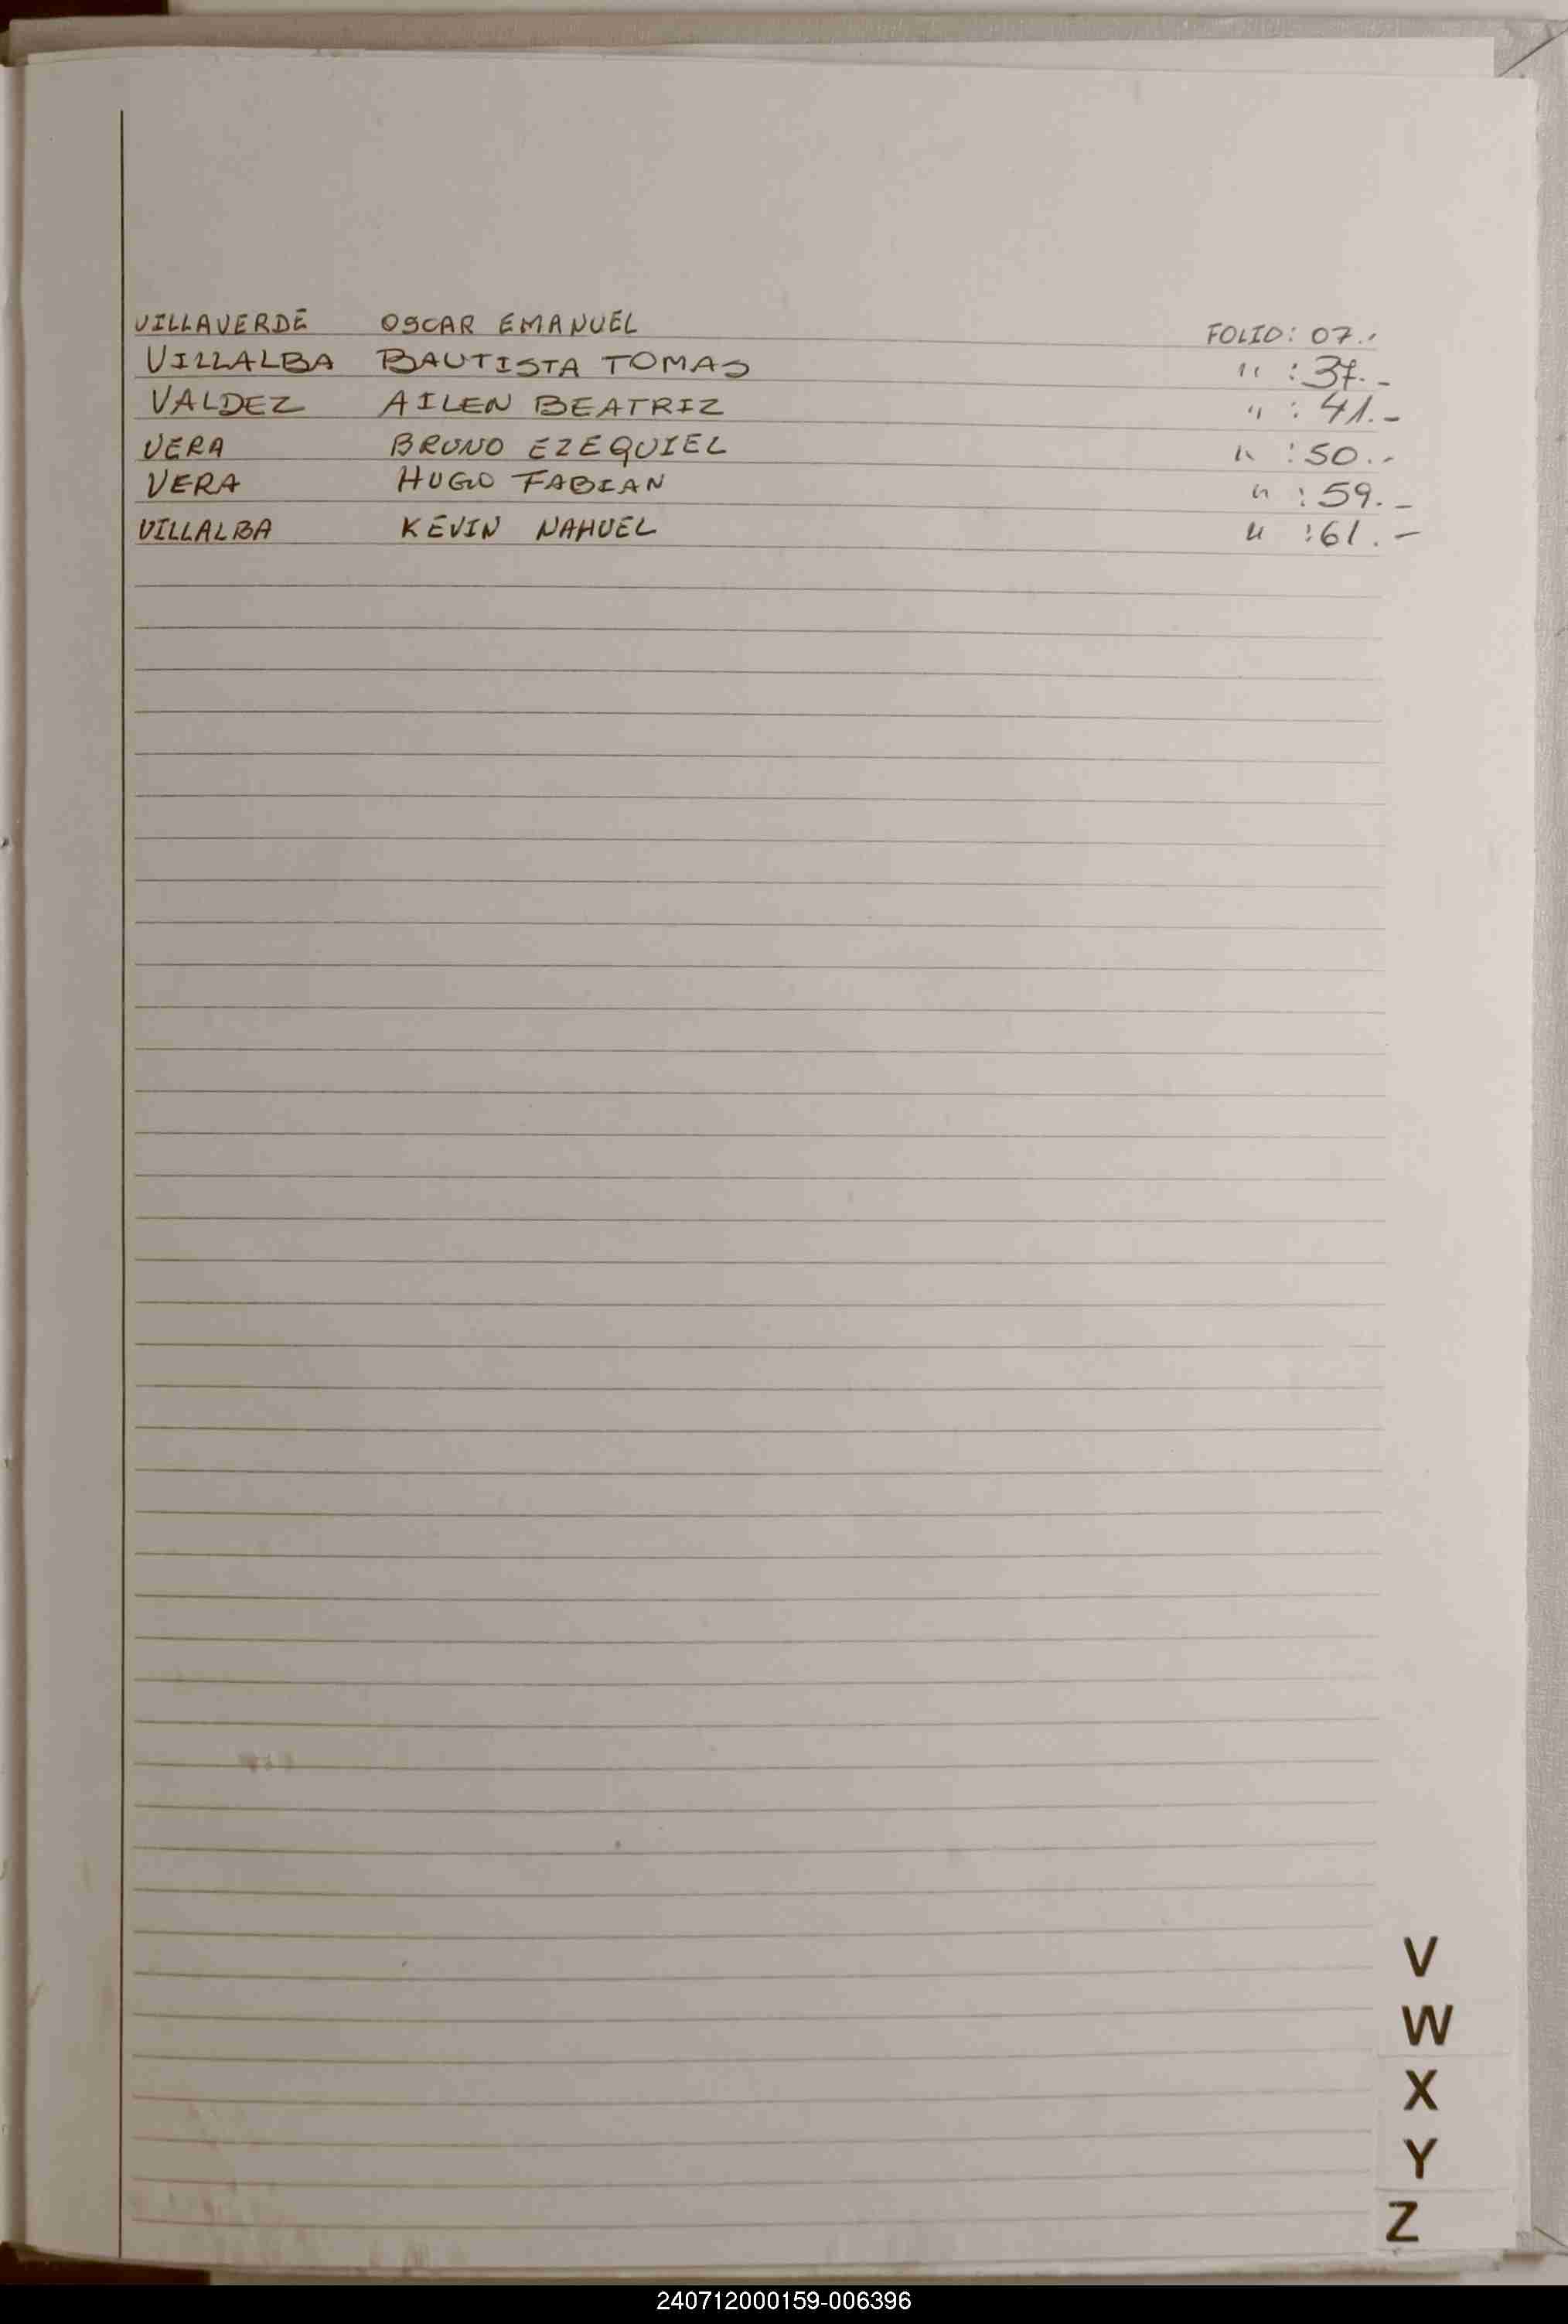 VILLAVERDE OSCAR EMANUEL FOLIO: 07.-
VILLALBA BAUTISTA TOMAS " : 37.-
VALDEZ AILEN BEATRIZ " : 41.-
VERA BRUNO EZEQUIEL " : 50.-
VERA HUGO FABIAN " : 59.-
VILLALBA KEVIN NAHUEL " : 61.-
V
W
X
Y
Z
240712000159-006396